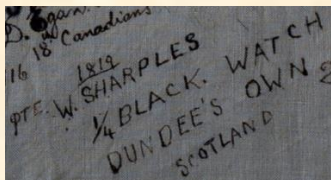 D.
16 18th Canadians
1819
PTE. W. SHARPLES
1/4 BLACK. WATCH
DUNDEE'S OWN
SCOTLAND